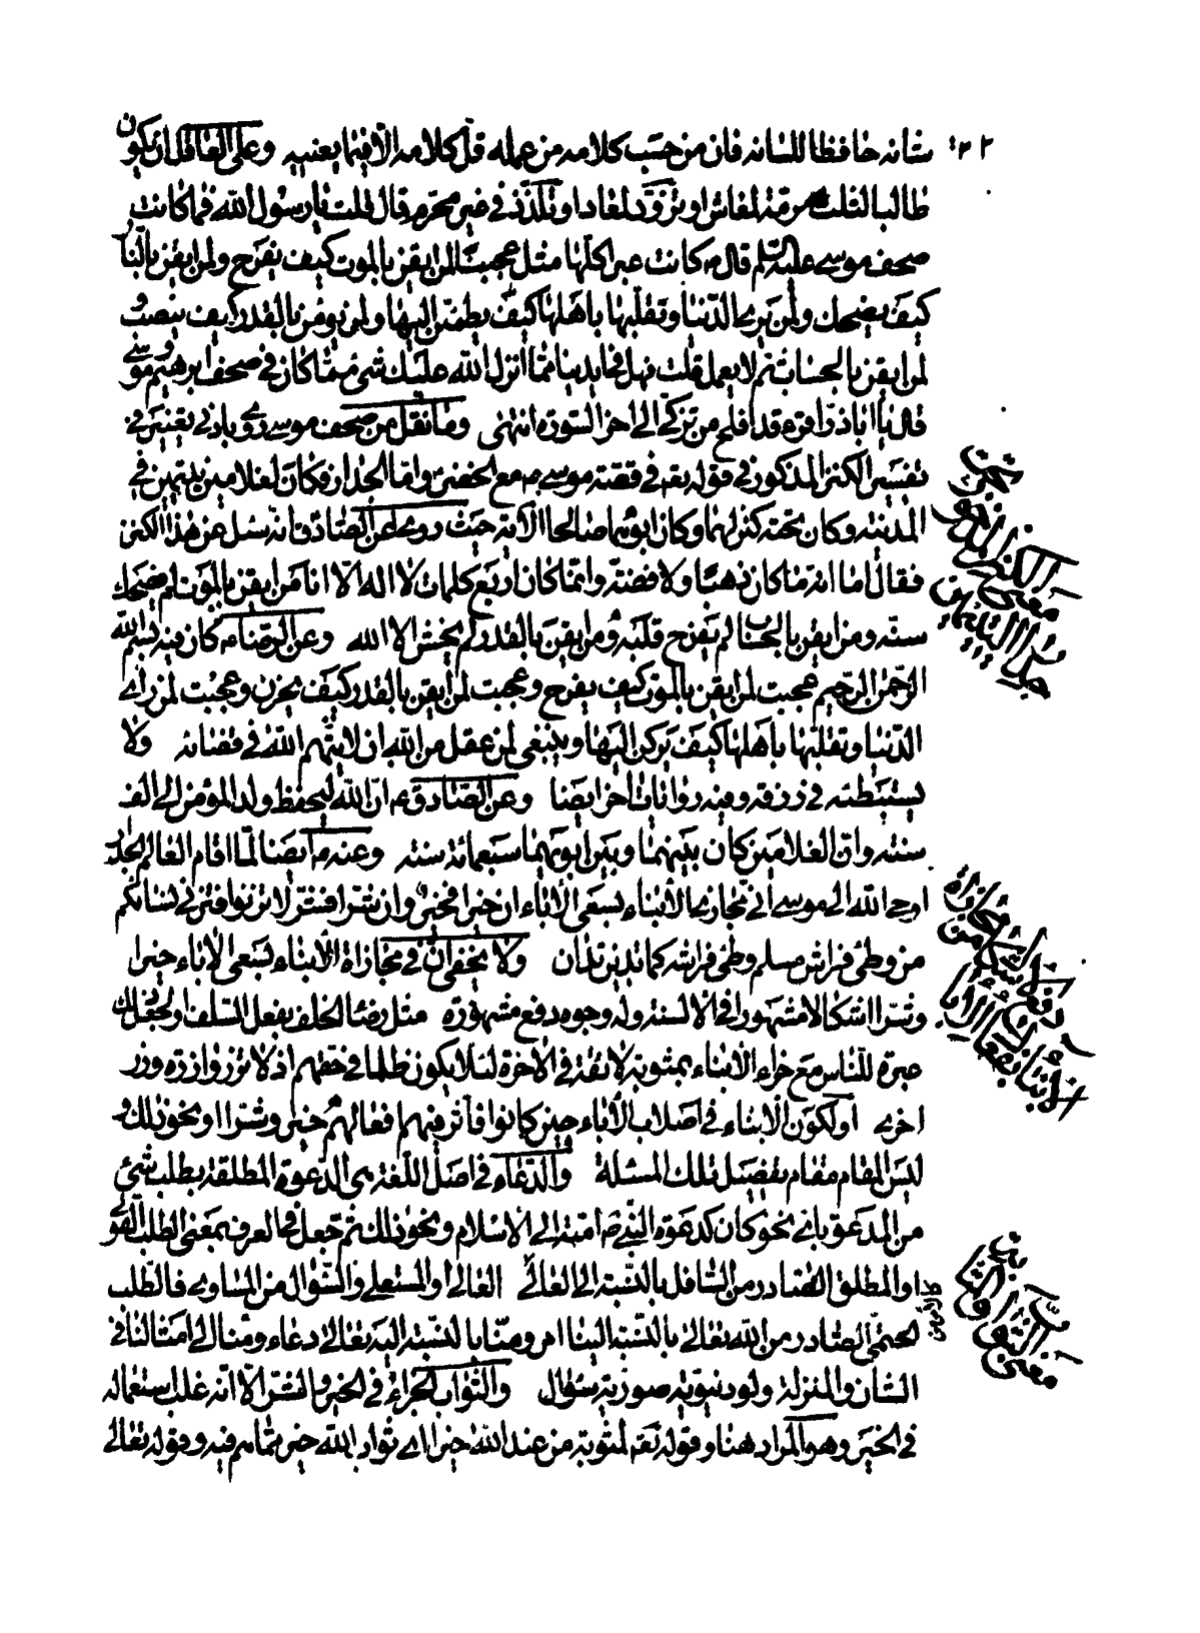 ٢٢ شانه حافظا للسانه فان من حسب كلامه من عمله قل كلامه الا فيما يعنيه وعلى العاقل ان يكون
طالبا لثلث مرمة لمعاش او تزود لمعاد او تلذذ في غير محرم قال قلت يا رسول الله فما كانت
صحف موسى عليه السلم قال كانت عبرا كلها مثل عجبت لمن ايقن بالموت كيف يفرح ولمن ايقن بالنار
كيف يضحك ولمن يرى الدنيا وتقلبها باهلها كيف يطمئن اليها ولمن يؤمن بالقدر كيف ينصب
لمن ايقن بالحساب ثم لا يعمل قلت فهل في ايدينا مما انزل الله عليك شئ مما كان في صحف ابرهيم وموسى
قال يا اباذر اقره قد افلح من تزكى الى اخر السورة انتهى وما نقل من صحف موسى روى باذنى تغيير في
تفسير الكنز المذكور في قوله تعه في قصة موسى مع الخضر واما الجدار فكان لغلامين يتيمين في
المدينة وكان تحته كنز لهما وكان ابوهما صالحا الاية حيث روى عن الصادق انه سئل عن هذا الكنز
فقال اما انه ما كان ذهبا ولا فضة وانما كان اربع كلمات لا اله الا انا من ايقن بالموت لم يضحك
سنه ومن ايقن بالحساب لم يفرح قلبه ومن ايقن بالقدر لم يخش الا الله وعن الرضا كان فيه بسم الله
الرحمن الرحيم عجبت لمن ايقن بالموت كيف يفرح وعجبت لمن ايقن بالقدر كيف يحزن وعجبت لمن راى
الدنيا وتقلبها باهلها كيف يركن اليها وينبغى لمن عقل من الله ان لا يتهم الله في قضائه ولا
يستبطئه في رزقه وفيه روايات اخر ايضا وعن الصادق ان الله ليحفظ ولد المؤمن الى الف
سنة وان الغلامين كان بينهما وبين ابويهما سبعمائة سنة وعنه ايضا لما اقام العالم الجدار
اوحى الله الى موسى انى مجازى الابناء بسعى الاباء ان خيرا فخير وان شرا فشر لا تزنوا فتزنى نسائكم
من وطئ فراش مسلم وطئ فراشه كما تدين تدان ولا يخفى ان في مجازاة الابناء بسعى الاباء خيرا
وشرا اشكالا مشهورا في الالسنة وله وجوه دفع مشهورة مثل رضا الخلف بفعل السلف او لجعل ذلك
عبرة للناس مع جزاء الابناء بمثوبة لائقة في الاخرة لئلا يكون ظلما في حقهم اذ لا تزر وازرة وزر
اخرى او لكون الابناء في اصلاب الاباء حين كانوا فاثر فيهم فعالهم خيرا وشرا او نحو ذلك و
ليس المقام مقام تفصيل تلك المسئلة والدعاء في اصل اللغة هى الدعوة المطلقة بطلب شئ
من المدعو باى نحو كان كدعوة النبى امته الى الاسلام ونحو ذلك ثم جعل في العرف بمعنى الطلب القولى
او المطلق الصادر من السافل بالنسبة الى العالى العالى او المستعلى والسؤال من المساوى فالطلب
الحتمى الصادر من الله تعالى بالنسبة الينا امر ومنا بالنسبة اليه تعالى دعاء ومنا الى امثالنا في
الشان والمنزلة ولو دنيوية صورية سؤال والثواب الجزاء في الخير والشر الا انه غلب استعماله
في الخير وهو المراد هنا وقوله تعه لمثوبة من عند الله خير اى ثواب الله خير مما هم فيه وقوله تعالى